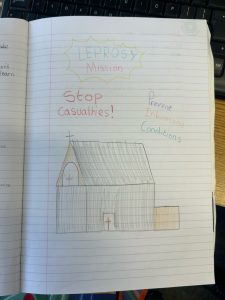 LEPROSY
Mission
Stop
casualties!
Prevent
Inhumane
Conditions